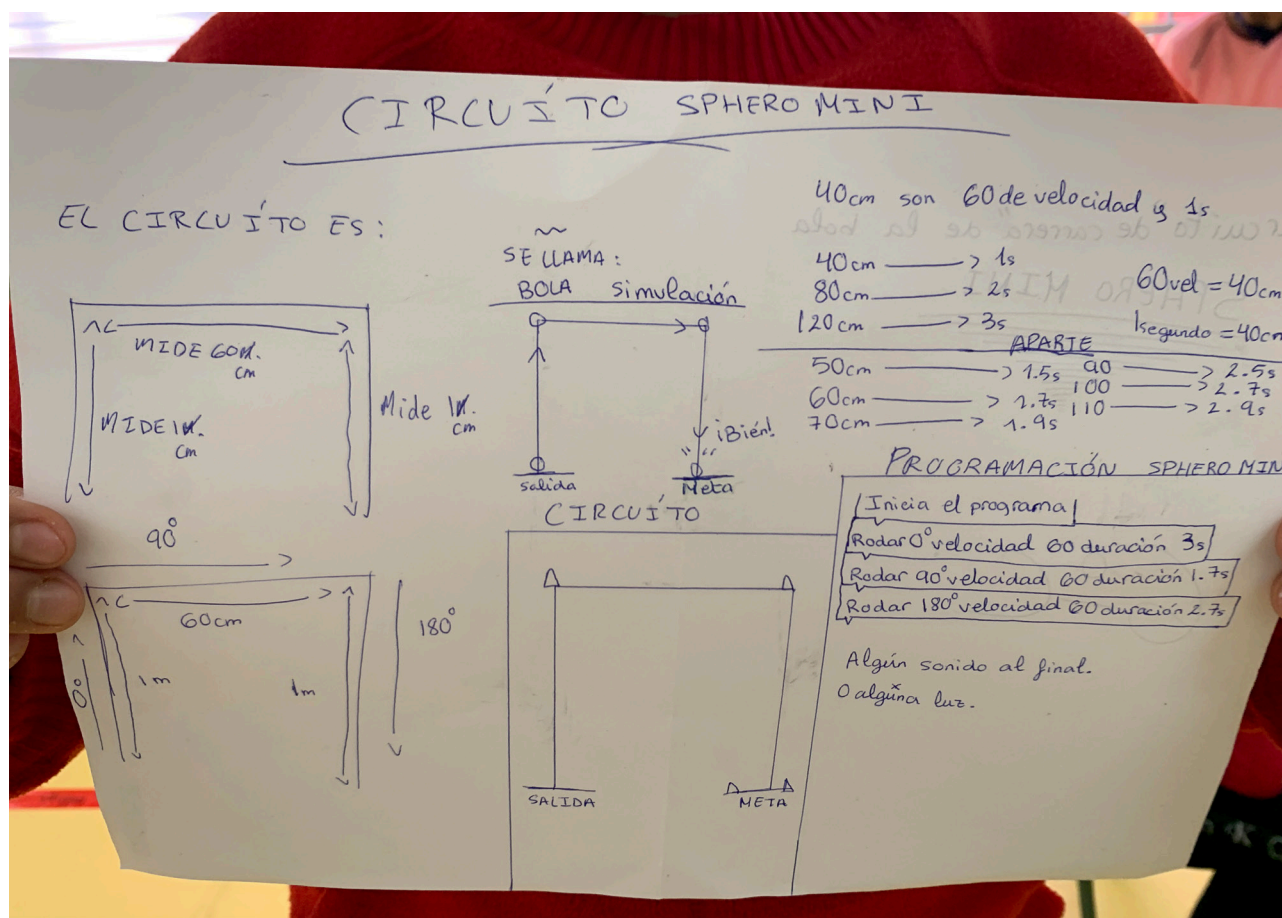 CIRCUÍTO SPHERO MINI
EL CIRCUÍTO ES:
MIDE 60M.
cm
MIDE 1M.
cm
Mide 1M.
cm
90°
60cm
0°
1m
1m
180°
SE LLAMA:
BOLA Simulación
¡Bién!
Salida
Meta
CIRCUÍTO
SALIDA
META
40cm son 60 de velocidad y 1s
40cm > 1s
80cm > 2s
120cm > 3s
60vel = 40cm
1segundo = 40cm
APARTE
50cm > 1.5s
60cm > 1.7s
70cm > 1.9s
90 > 2.5s
100 > 2.7s
110 > 2.9s
PROGRAMACIÓN SPHERO MIN
Inicia el programa
Rodar 0° velocidad 60 duración 3s
Rodar 90° velocidad 60 duración 1.7s
Rodar 180° velocidad 60 duración 2.7s
Algún sonido al final.
O alguna luz.